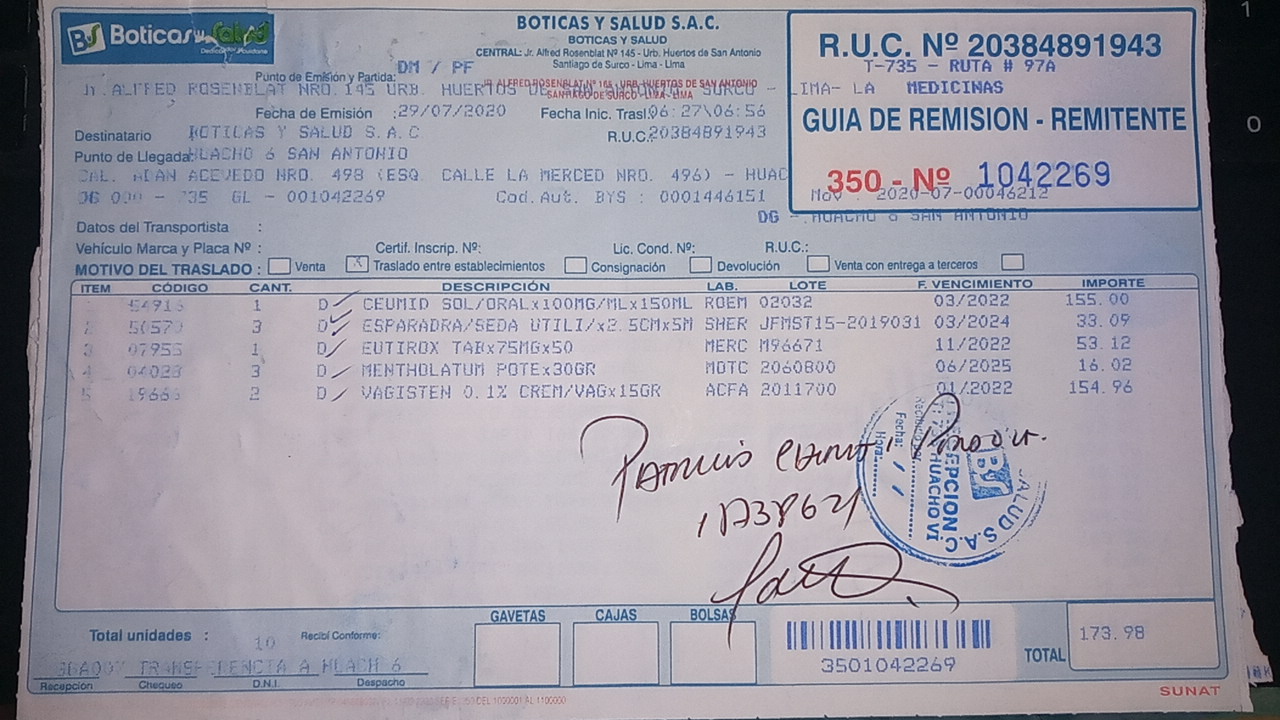 BS Boticas y Salud
Dedicados a Ayudarte
BOTICAS Y SALUD S.A.C.
BOTICAS Y SALUD
CENTRAL: Jr. Alfred Rosenblat Nº 145 - Urb. Huertos de San Antonio
Santiago de Surco - Lima - Lima
R.U.C. Nº 20384891943
T-735 - RUTA # 97A
MEDICINAS
GUIA DE REMISION - REMITENTE
350 - Nº 1042269
Mov. 2020-07-00046212
Punto de Emisión y Partida: DM / PF
JR. ALFRED ROSENBLAT Nº 145 - URB. HUERTOS DE SAN ANTONIO
SANTIAGO DE SURCO - LIMA - LIMA
Jr. ALFRED ROSENBLAT NRO. 145 URB. HUERTOS DE SAN ANTONIO SURCO - LIMA- LA
Fecha de Emisión :29/07/2020 Fecha Inic. Trasl. 06:27\06:56
Destinatario BOTICAS Y SALUD S.A.C R.U.C. 20384891943
Punto de Llegada: HUACHO 6 SAN ANTONIO
CAL. ADAN ACEVEDO NRO. 498 (ESQ. CALLE LA MERCED NRO. 496) - HUAC
DG 000 - 735 GL - 001042269 Cod.Aut. BYS : 0001446151
DG - HUACHO 6 SAN ANTONIO
Datos del Transportista :
Vehículo Marca y Placa Nº : Certif. Inscrip. Nº: Lic. Cond. Nº: R.U.C.:
MOTIVO DEL TRASLADO : Venta X Traslado entre establecimientos Consignación Devolución Venta con entrega a terceros
ITEM CÓDIGO CANT. DESCRIPCIÓN LAB. LOTE F. VENCIMIENTO IMPORTE
54916 1 D CEUMID SOL/ORALx100MG/MLx150ML ROEM 02032 03/2022 155.00
2 50570 3 D ESPARADRA/SEDA UTILI/x2.5CMx5M SHER JFMST15-2019031 03/2024 33.09
3 07955 1 D EUTIROX TABx75MGx50 MERC M96671 11/2022 53.12
4 04028 3 D MENTHOLATUM POTEx30GR MDTC 2060800 06/2025 16.02
5 19666 2 D VAGISTEN 0.1% CREM/VAGx15GR ACFA 2011700 01/2022 154.96
SALUD S.A.C
BS
RECEPCION
HUACHO VI
Fecha: / /
Hora:
GAVETAS CAJAS BOLSAS
Total unidades : 10 Recibí Conforme:
TRANSFERENCIA A HUACH 6
Recepción Chequeo D.N.I. Despacho
3501042269
TOTAL 173.98
SUNAT